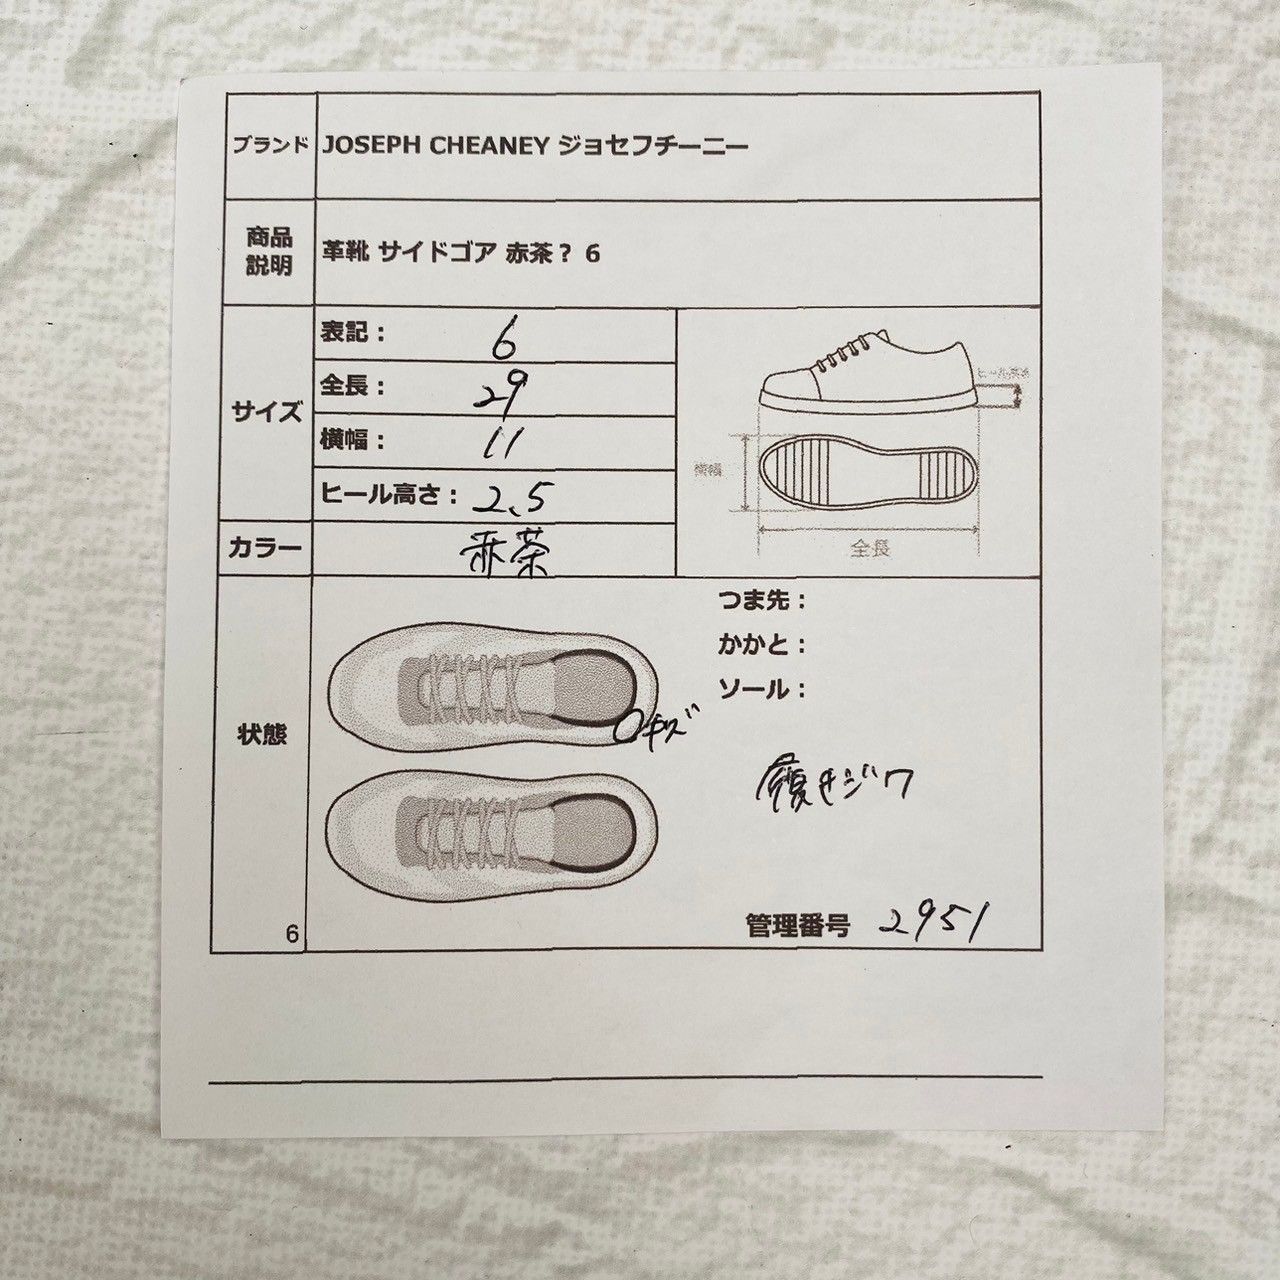 ブランド JOSEPH CHEANEY ジョセフチーニー
商品
説明
革靴 サイドゴア 赤茶? 6
サイズ
表記: 6
全長: 29
横幅: 11
ヒール高さ: 2.5
カラー 赤茶
ヒール高さ
横幅
全長
状態
つま先:
かかと:
ソール:
キズ
履きジワ
管理番号 2951
6